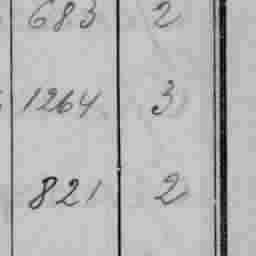 683 2
1264 3
821 2